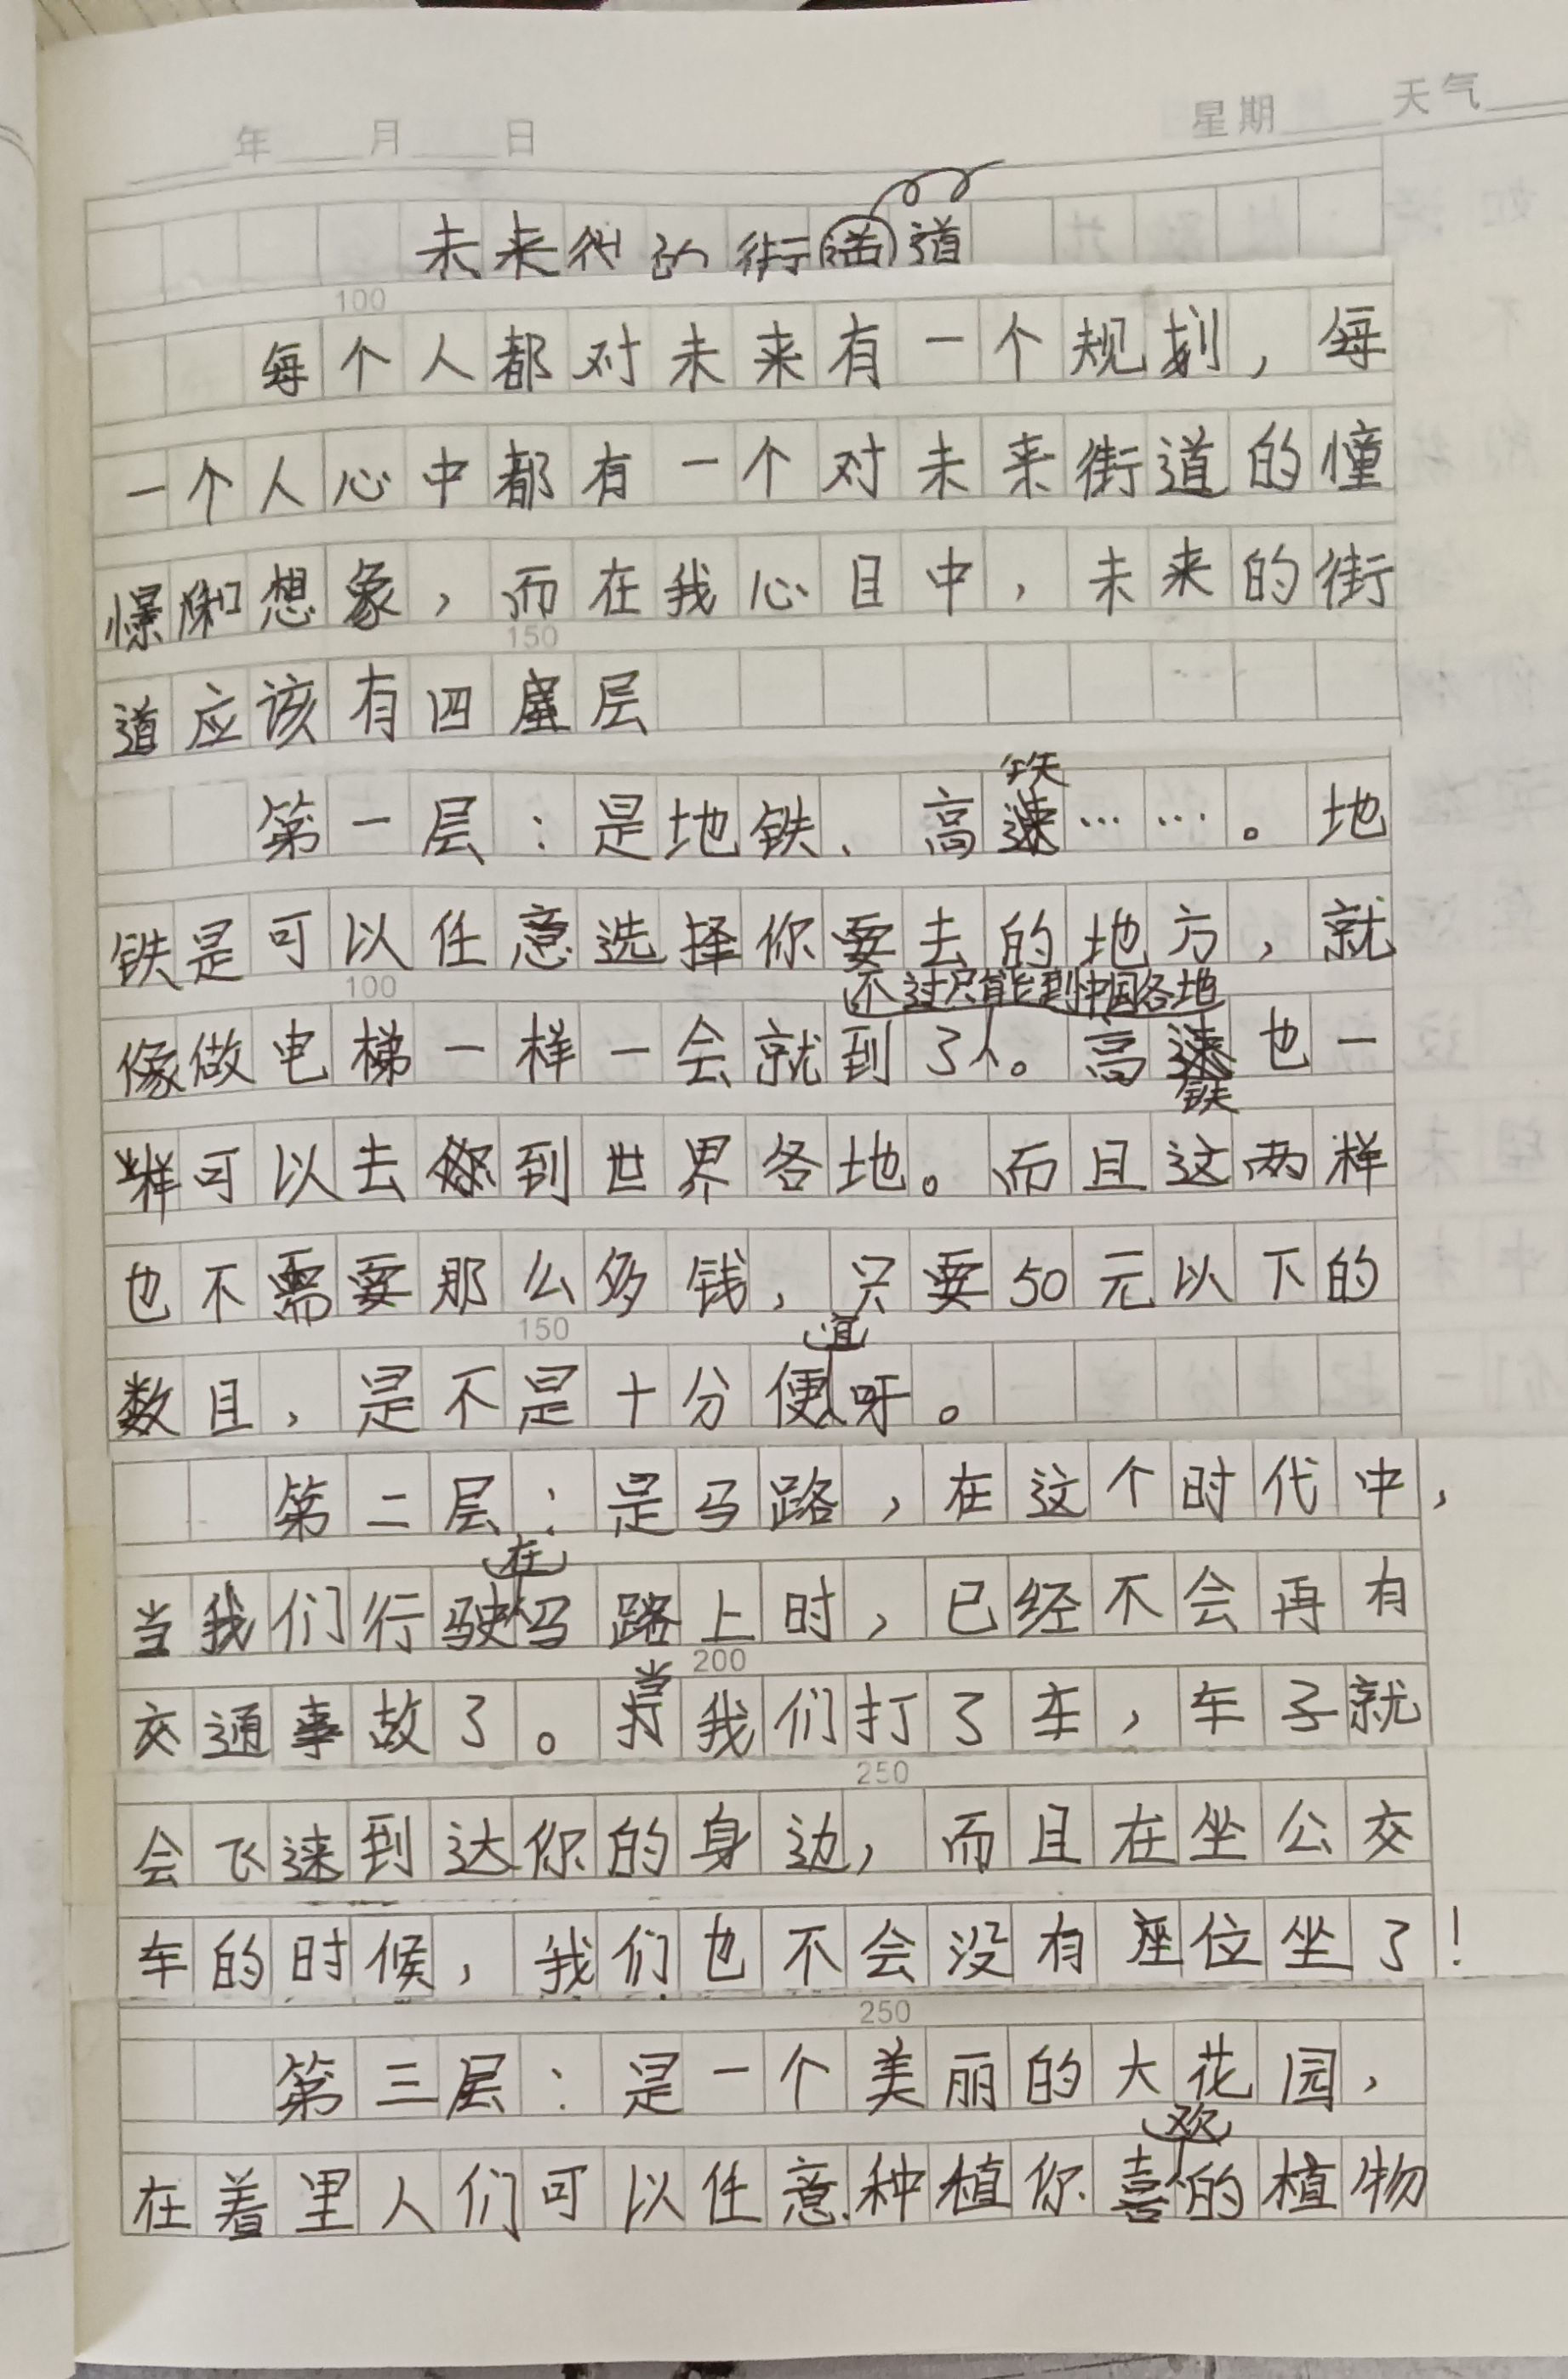 年 月 日 星期 天气
未来的街道
100
每个人都对未来有一个规划，每
一个人心中都有一个对未来街道的憧
憬和想象，而在我心目中，未来的街
150
道应该有四层
第一层：是地铁、高铁……。地
铁是可以任意选择你要去的地方，就
100
像做电梯一样一会就到了不过只能到中国各地。高铁也一
样可以去到世界各地。而且这两样
也不需要那么多钱，只要50元以下的
150
数目，是不是十分便宜呀。
第二层：是马路，在这个时代中，
当我们行驶在马路上时，已经不会再有
200
交通事故了。当我们打了车，车子就
250
会飞速到达你的身边，而且在坐公交
车的时候，我们也不会没有座位坐了！
250
第三层：是一个美丽的大花园，
在着里人们可以任意种植你喜欢的植物